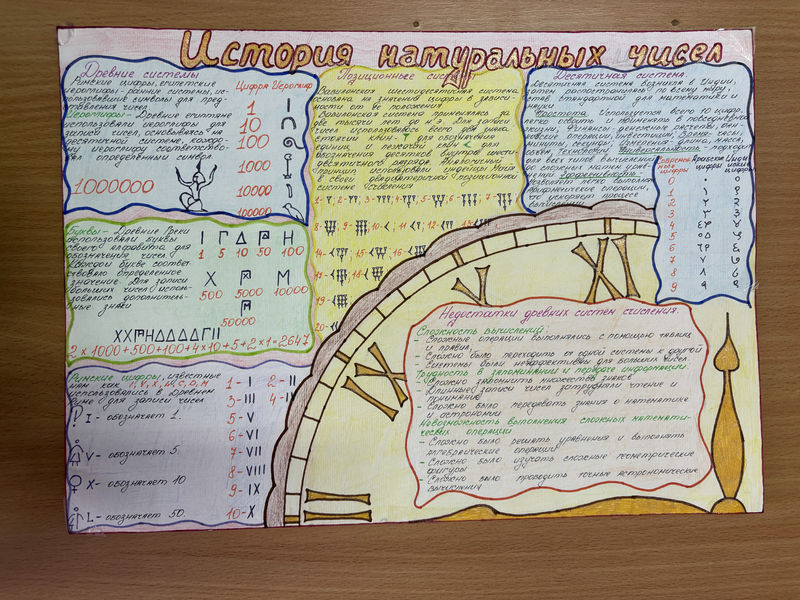 История натуральных чисел
Древние системы
Римские цифры, египетские
иероглифы - ранние системы, ис-
пользовавшие символы для пред-
ставления чисел.
Иероглифы - Древние египтяне
использовали иероглифы для
записи чисел, основываясь на
десятичной системе, каждо-
му иероглифу соответство-
вал определённый символ
1000000
Цифра Иероглиф
1
10
100
1000
10000
100000
Позиционные
Вавилонская шестидесятичная система
основана на значении цифры в зависи-
мости от её положения.
Вавилонская система применялась за
две тысячи лет до н.э. Для записи
чисел использовалось всего два знака
стоячий клин для обозначения
единиц и лежачий клин для
обозначения десятков внутри шести-
десятичного разряда. Аналогичный
принцип использовали индейцы Майя
в своей двадцатеричной позиционной
системе счисления
1- 2- 3- 4- 5- 6- 7-
8- 9- 10- 11- 12- 13-
14- 15- 16-
17- 18-
19-
20-
Десятичная система
Десятичная система возникла в Индии,
затем распространилась по всему миру,
став стандартной для математики и
науки
Простота. Используется всего 10 цифр,
легко освоить и применять в повседневной
жизни. Финансы - денежные расчёты, бан-
ковские операции, инвестиции. Время - часы,
минуты, секунды. Измерения - длина, масса,
объём, температура. Универсальность - подходит
для всех типов вычислений
до сложения
Эффективность -
позволяет легко выполнять
арифметические операции,
что ускоряет процесс
вычислений
Современ-
ные
цифры
Арабские
цифры
Индий-
ские
цифры
0 ٠ ०
1 ١ १
2 ٢ २
3 ٣ ३
4 ४
5 ५
6 ६
7 ٧ ७
8 ٨ ८
9 ٩ ९
Буквы - Древние Греки
использовали буквы
своего алфавита для
обозначения чисел.
Каждой букве соответ-
ствовало определённое
значение. Для записи
больших чисел исполь-
зовались дополнитель-
ные знаки
Ι Γ Δ Η
1 5 10 50 100
Χ Μ
500 5000 10000
50000
ΧΧΗΔΔΔΔΓΙΙ
2×1000+500+100+4×10+5+2×1=2647
Римские цифры, известные
нам как I, V, X, L, C, D, M
использовались в Древнем
Риме для записи чисел
I - обозначает 1.
V - обозначает 5.
X - обозначает 10
L - обозначает 50.
1- I 2- II
3- III 4- IV
5- V
6- VI
7- VII
8- VIII
9- IX
10- X
III
IX
V
XI
Недостатки древних систем счисления.
Сложность вычислений:
- Сложные операции выполнялись с помощью таблиц
и правил
- Сложно было переходить от одной системы к другой
- Системы были неэффективны для больших чисел
Трудность в запоминании и передаче информации
- Сложно запомнить множество знаков
- Длинные записи чисел затрудняли чтение и
понимание
- Сложно было передавать знания о математике
и астрономии
Невозможность выполнения сложных математи-
ческих операций
- Сложно было решать уравнения и выполнять
алгебраические операции
- Сложно было изучать сложные геометрические
фигуры
- Сложно было проводить точные астрономические
вычисления